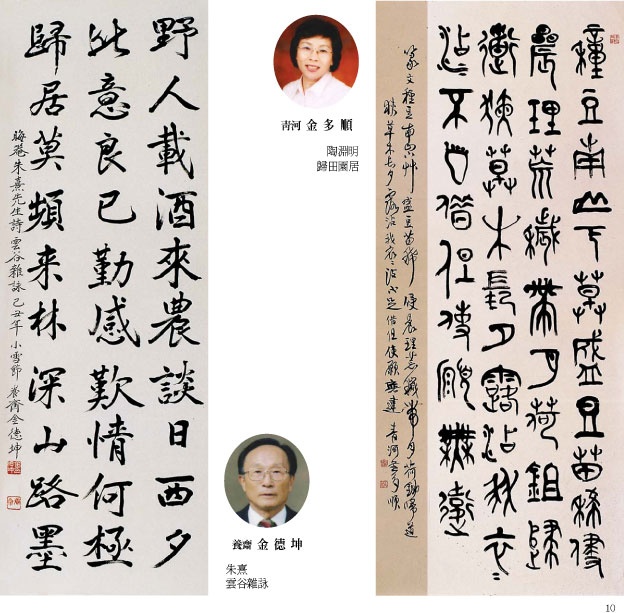 種豆南山下草盛豆苗稀侵
晨理荒穢帶月荷鉏歸
道狹草木長夕露沾我衣
沾不足惜但使願無違
篆文種豆南山下艸盛豆苗稀侵晨理荒穢帶月荷鋤歸道
狹草木長夕露沾我衣〻沾不足惜但使願無違 青河金多順
青河 金多順
陶淵明
歸田園居
野人載酒來農談日西夕
此意良已勤感歎情何極
歸居莫頻来林深山路墨
晦菴朱熹先生詩雲谷雜詠 己丑年小雪節 養齋金德坤
養齋 金德坤
朱熹
雲谷雜詠
10